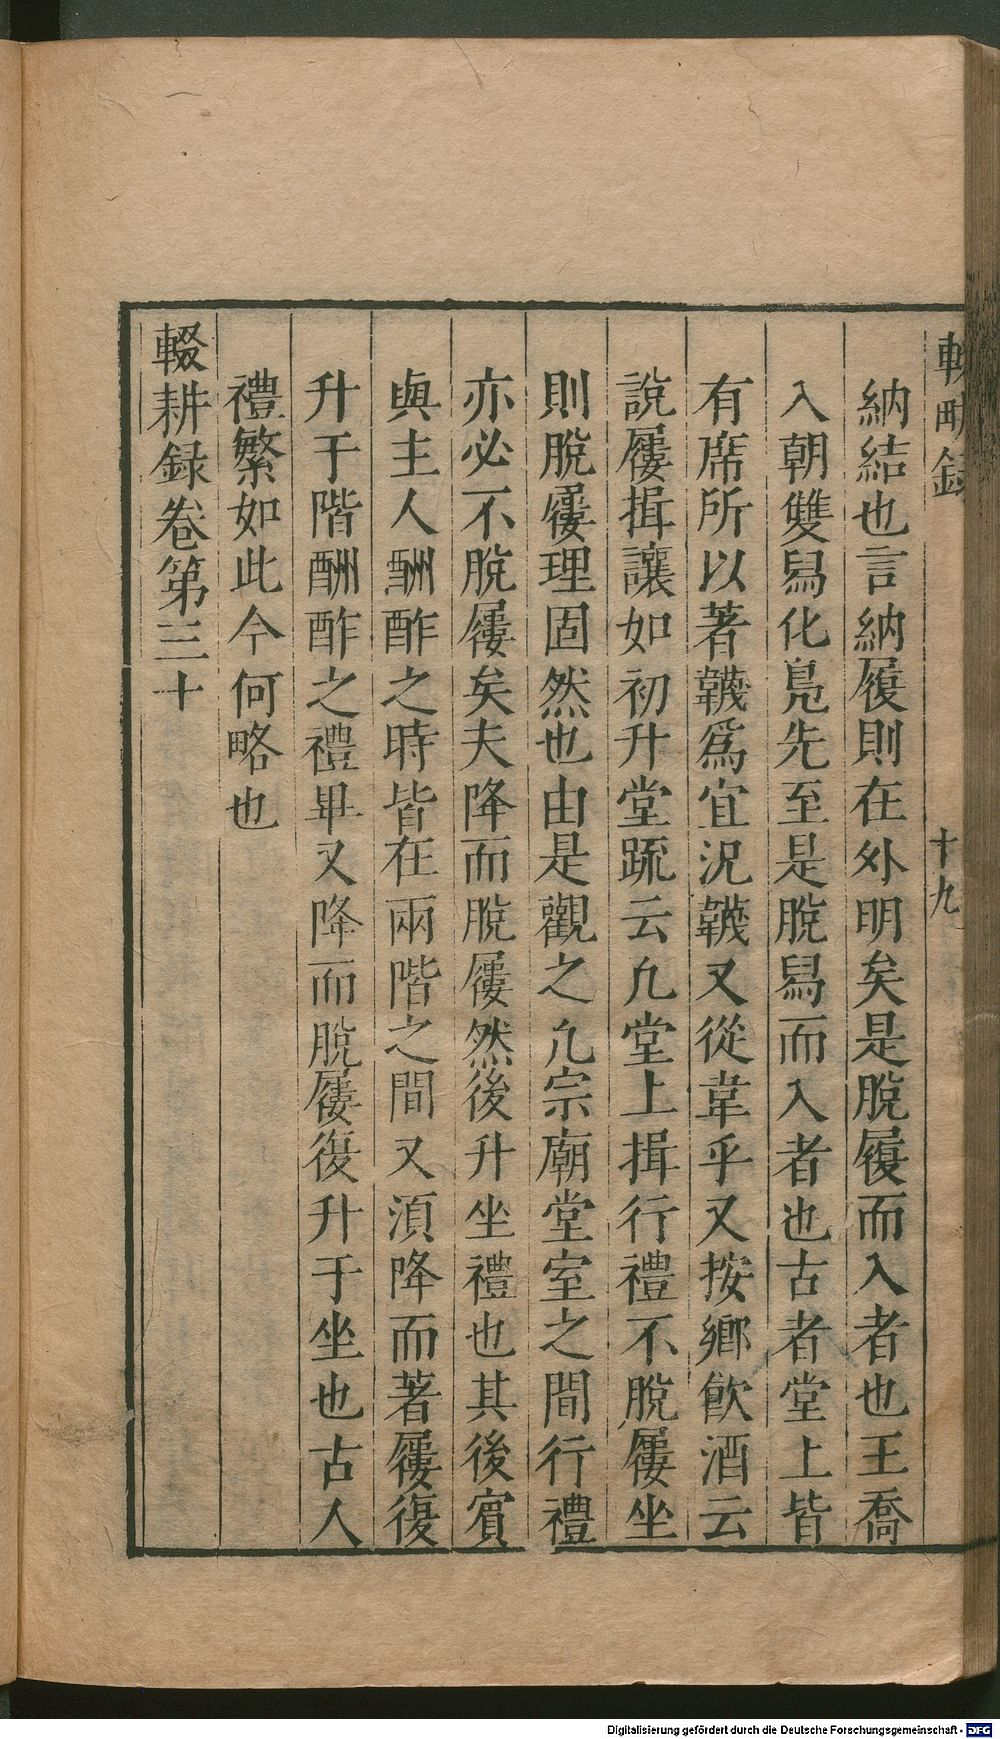 輟耕録
十九
納結也言納履則在外明矣是脫履而入者也王喬
入朝雙舄化鳧先至是脫舄而入者也古者堂上皆
有席所以著韈爲宜况韈又從韋乎又按鄉飲酒云
說屨揖讓如初升堂䟽云凢堂上揖行禮不脫屨坐
則脫屨理固然也由是觀之凢宗廟堂室之間行禮
亦必不脫屨矣夫降而脫屨然後升坐禮也其後賔
與主人酬酢之時皆在兩階之間又湏降而著屨復
升于階酬酢之禮畢又降而脫屨復升于坐也古人
禮繁如此今何略也
輟耕録卷第三十
Digitalisierung gefördert durch die Deutsche Forschungsgemeinschaft - DFG